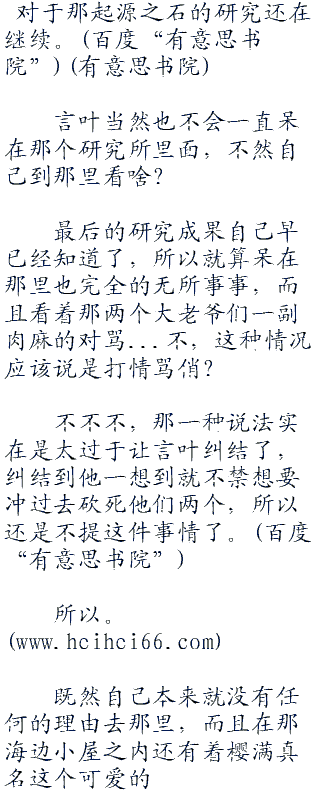 对于那起源之石的研究还在
继续。(百度“有意思书
院”)(有意思书院)
言叶当然也不会一直呆
在那个研究所里面，不然自
己到那里看啥？
最后的研究成果自己早
已经知道了，所以就算呆在
那里也完全的无所事事，而
且看着那两个大老爷们一副
肉麻的对骂...不，这种情况
应该说是打情骂俏？
不不不，那一种说法实
在是太过于让言叶纠结了，
纠结到他一想到就不禁想要
冲过去砍死他们两个，所以
还是不提这件事情了。(百度
“有意思书院”)
所以。
(www.hcihci66.com)
既然自己本来就没有任
何的理由去那里，而且在那
海边小屋之内还有着樱满真
名这个可爱的